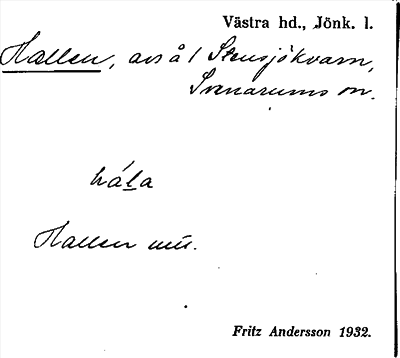 Västra hd., Jönk. l.
Hallen, avs å 1 Stensjökvarn,
Svenarums sn.
hála
Hallen
Fritz Andersson 1932.